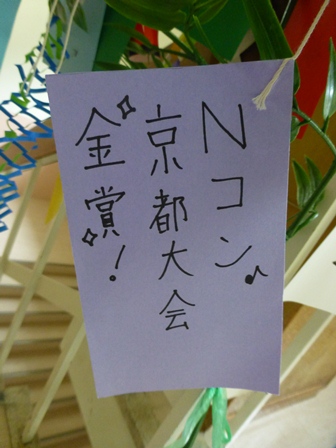 Nコン♪
京都大会
金賞!